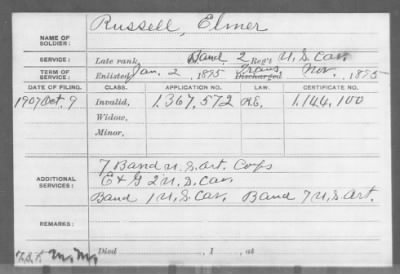 NAME OF SOLDIER: Russell, Elmer
SERVICE: Late rank, Band 2 Reg't U.S. Cav.
TERM OF SERVICE: Enlisted Jan. 2, 1895 Trans Discharged Nov. , 1895
DATE OF FILING. CLASS. APPLICATION NO. LAW. CERTIFICATE NO.
1907 Oct. 9 Invalid, 1,367,572 1,144,100
Widow,
Minor,
7 Band U.S. Art. Corps
ADDITIONAL SERVICES: E & G 2 U.S. Cav.
Band 1 U.S. Cav. Band 7 U.S. Art.
REMARKS:
Died , 1 , at